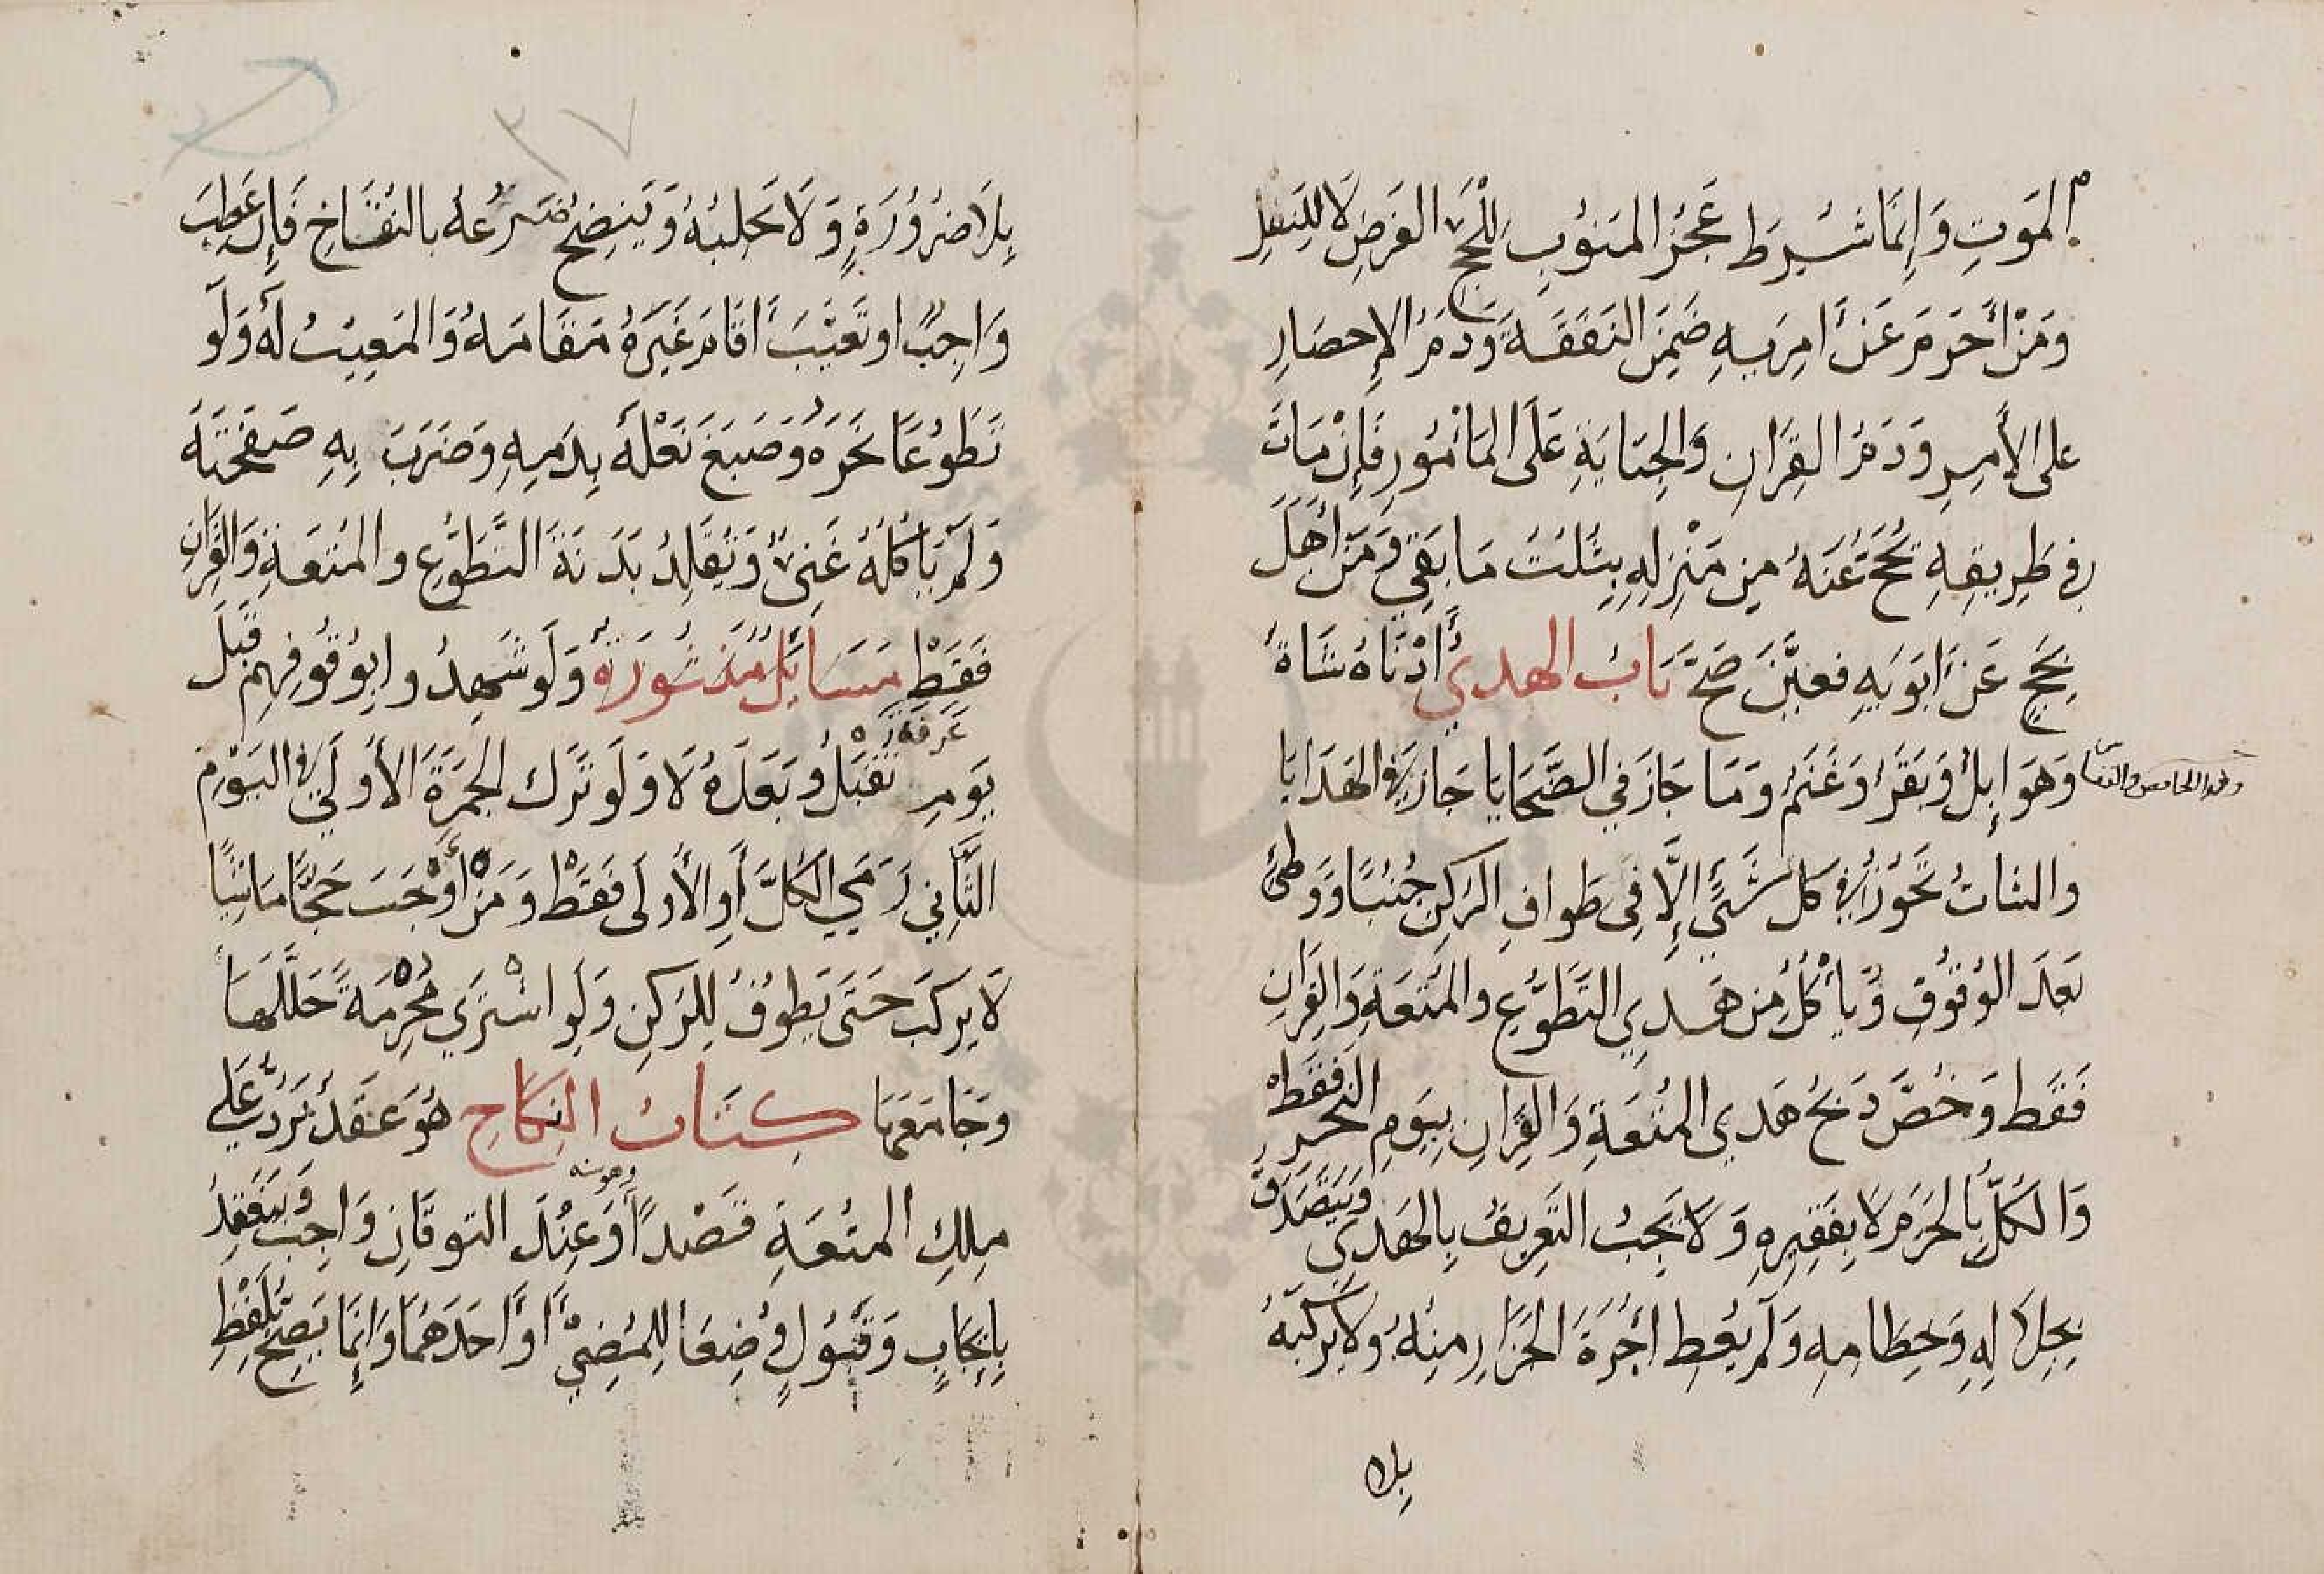 الموت وَإِنَّمَا شُرِطَ عَجْزُ المَنُوبِ لِلْحَجِّ الفَرْضِ لَا لِلنَّفْلِ
وَمَنْ أَحْرَمَ عَنْ أَمِرَيهِ ضَمِنَ النَّفَقَةَ وَدَمُ الإِحصَارِ
على الأمِرِ وَدَمُ القِرَانِ وَالجِنَايَةِ عَلَى المَأْمُورِ فَإِنْ مَاتَ
في طَرِيقِهِ يُحَجُّ عَنْهُ مِن مَنْزِلِهِ بِثُلُثِ مَا بَقِيَ وَمَنْ أَهَلَّ
بِحَجٍّ عَنْ أَبَوَيهِ فعيَّنَ صَحَّ بَابُ الهدي أَدْنَاهُ شَاةٌ
وَهُوَ إِبِلٌ وَبَقَرٌ وَغَنَمٌ وَمَا جَازَ فِي الضَّحَايَا جَازَ فِي الهَدَايَا
والشاةُ تَجُوزُ في كل شَيْءٍ إِلَّا فِي طَوافِ الرُّكنِ جُنُبًا وَوَطْئٍ
بَعدَ الوُقُوفِ وَيَأْكُلُ مِن هَدي التَّطَوُّعِ والمُتْعَةِ وَالقِرَانِ
فَقَط وَخُصَّ ذَبحُ هَدي المُتْعَةِ وَالقِرَانِ بِيَومِ النَّحرِ فَقَطْ
وَالكُلُّ بِالحَرَمِ لَا بِفَقِيرِهِ وَلَا يَجِبُ التَّعرِيفُ بِالهَدي وَيَتَصَدَّقُ
بِجِلَالِهِ وَخِطَامِهِ وَلَم يُعْطِ أُجْرَةَ الجَزَّارِ مِنْهُ وَلَا يَركَبُهُ
بلا
٢٧
بِلَا ضَرُورَةٍ وَلَا يَحلِبُهُ وَيَنضِحُ ضَرعُهُ بالنُّقَاخِ فَإِن عَطِبَ
وَاجِبٌ او تَعَيَّبَ أَقَامَ غَيرَهُ مَقَامَهُ وَالمَعِيبُ لَهُ وَلَو
تَطَوُّعًا نَحَرَهُ وَصَبَغَ نَعْلَهُ بِدَمِهِ وَضَرَبَ بِهِ صَفْحَتَهُ
وَلَم يَأْكُلْهُ غَنِيٌّ وَتُقَلَّدُ بَدَنَةُ التَّطَوُّعِ والمُتْعَةِ وَالقِرَانِ
فَقَطْ مَسَائِلُ مَنثُورَةٌ وَلَو شَهِدُوا بِوُقُوفِهِم قَبلَ
يَومِ عَرفة تُقْبَلُ وَبَعدَهُ لَا وَلَو تَرَكَ الجَمرَةَ الأُولَى في اليَوْمِ
الثَّانِي رَمَى الكُلَّ أَوِ الأُولَى فَقَطْ وَمَنْ أَوْجَبَ حَجًّا مَاشِيًا
لَا يَركَب حَتَّى يَطوفَ لِلرُّكنِ وَلَو اشْتَرَى مُحْرِمَةً حَلَّلَهَا
وَجَامَعَهَا كِتَابُ النِّكَاحِ هُوَ عَقدٌ يَرِدُ عَلَى
مِلكِ المُتْعَةِ قَصْدًا وَعِنْدَ التوقَانِ وَاجِبٌ وَيَنعَقِدُ
بِإِيجَابٍ وَقَبُولٍ وُضِعَا لِلمُضِيِّ أَو أَحَدهُمَا وَإِنَّمَا يَصِحُّ بِلَفْظِ